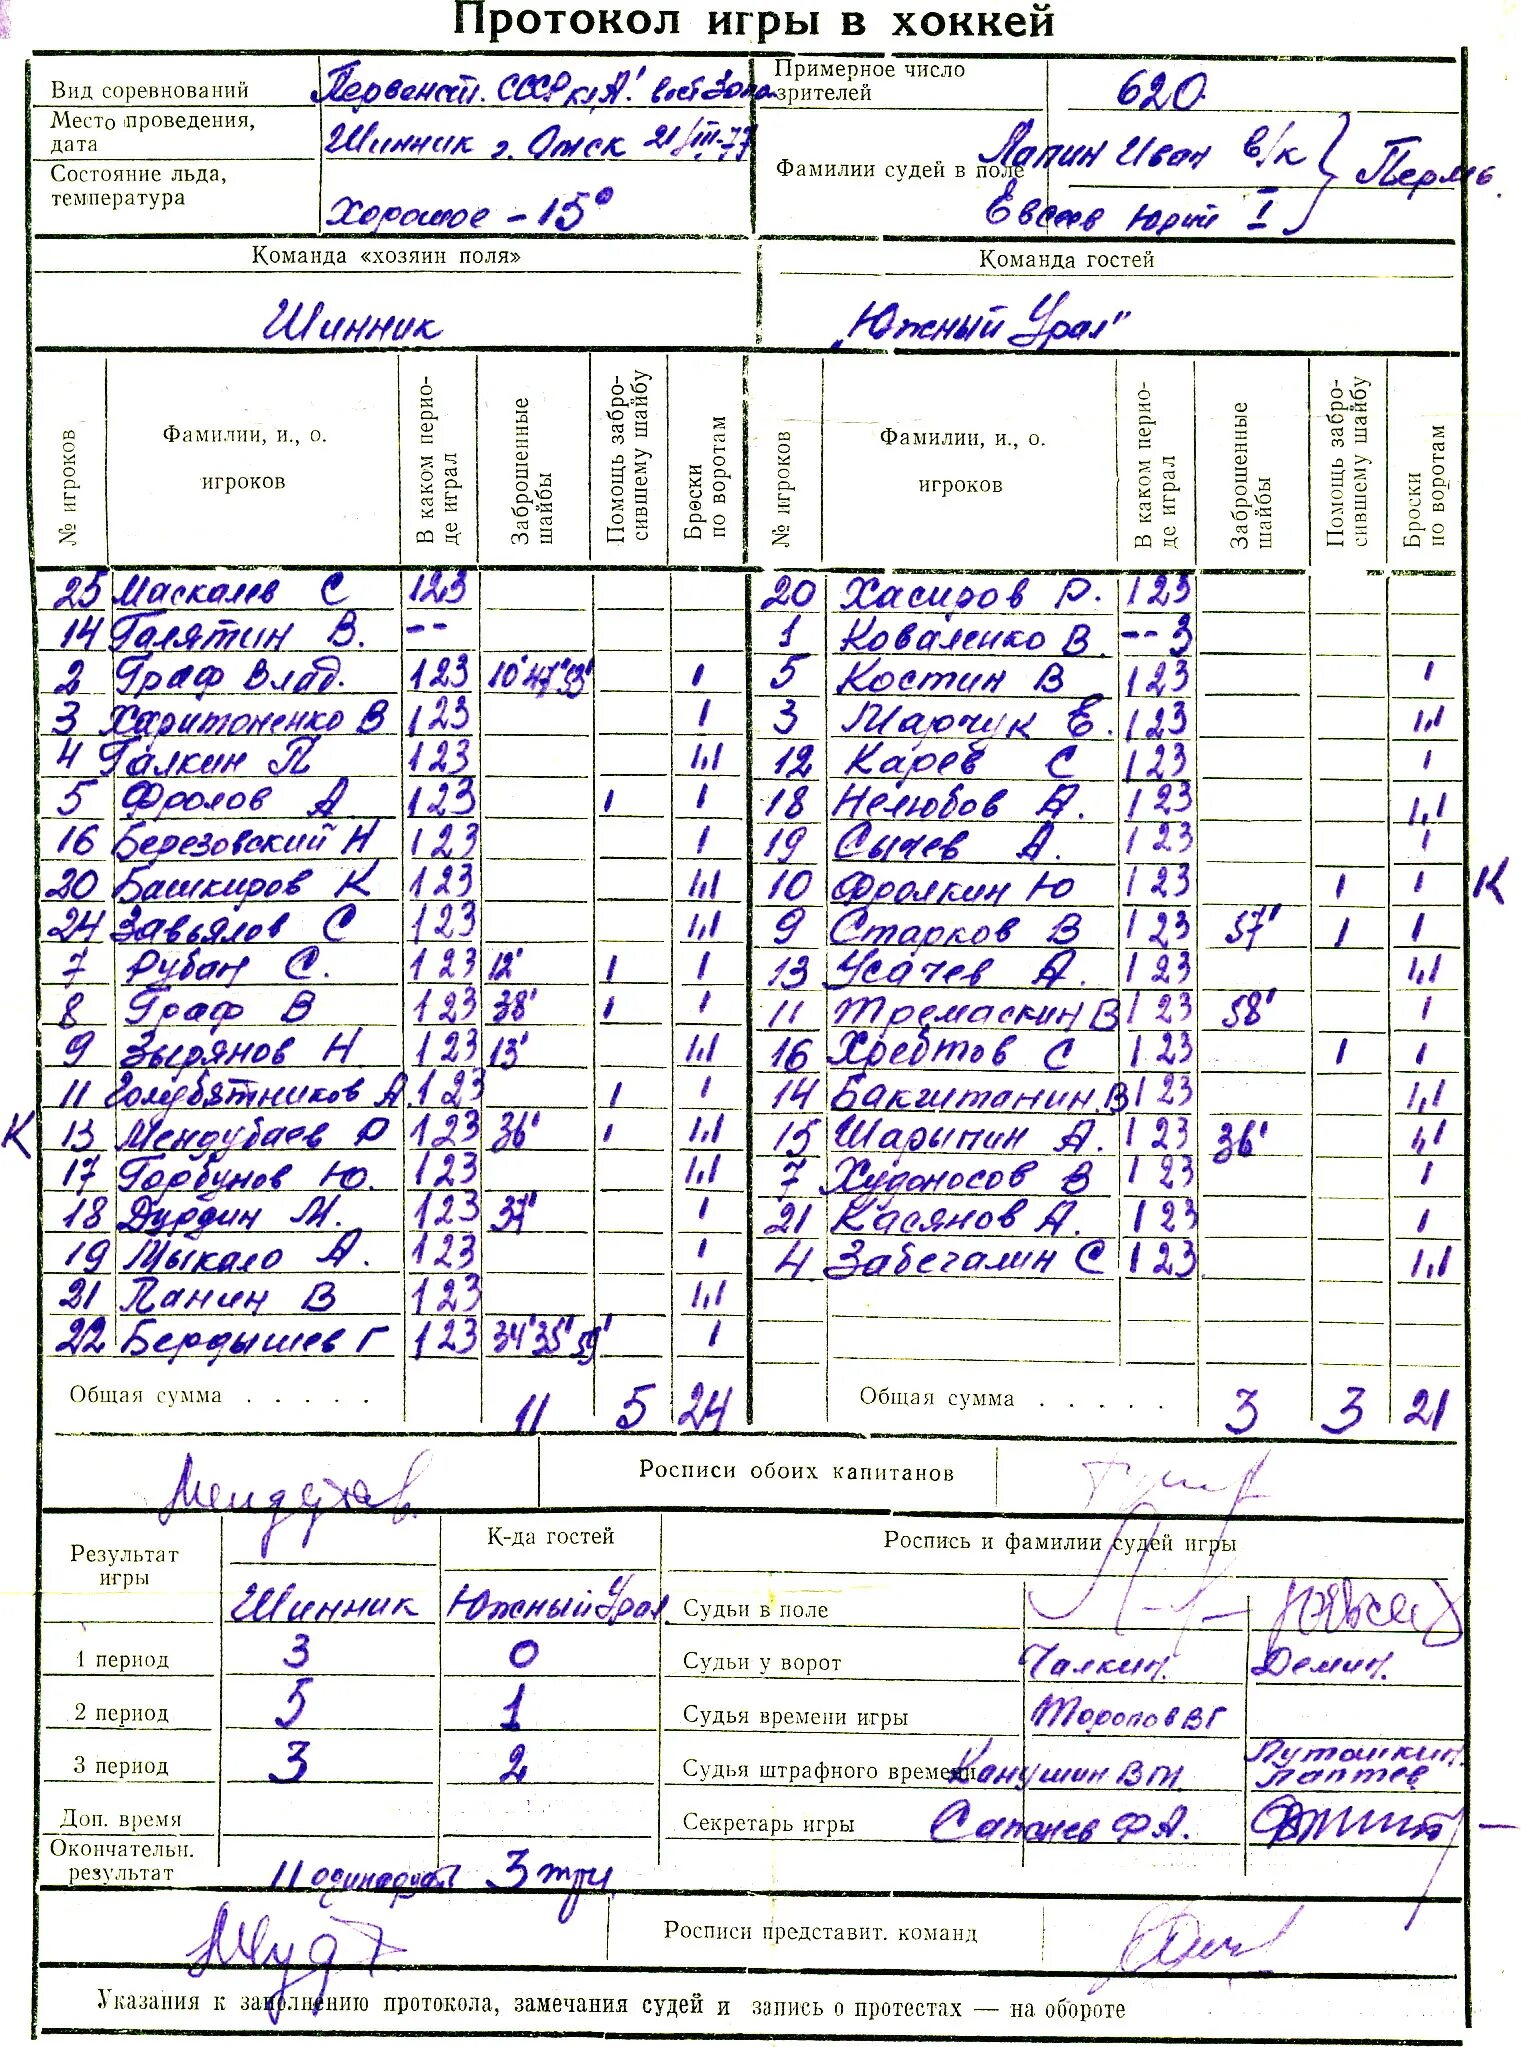 Протокол игры в хоккей
Вид соревнований Первенст. СССР кл „А“ вост зона
Примерное число зрителей 620
Место проведения, дата Шинник г. Омск 21/III-77
Фамилии судей в поле Лапин Иван в/к
Евсеев Юрий I
Пермь
Состояние льда, температура Хорошое -15°
Команда «хозяин поля» Команда гостей
Шинник „Южный Урал"
№ игроков Фамилии, и., о. игроков В каком перио-де играл Заброшенные шайбы Помощь забро-сившему шайбу Броски по воротам № игроков Фамилии, и., о. игроков В каком перио-де играл Заброшенные шайбы Помощь забро-сившему шайбу Броски по воротам
25 Маскалев С 123 20 Хасиров Р. 123
14 Галятин В. -- 1 Коваленко В. --3
2 Граф Влад. 123 10' 47' 53' 1 5 Костин В 123 1
3 Харитоненко В 123 1 3 Марчук Е. 123 1,1
4 Галкин П 123 1,1 12 Карев С 123 1
5 Фролов А 123 1 1 18 Нелюбов А. 123 1,1
16 Березовский Н 123 1 19 Сычев А. 123 1
20 Башкиров К 123 1,1 10 Фролкин Ю 123 1 1 К
24 Завьялов С 123 1,1 9 Старков В 123 57' 1 1
7 Рубан С. 123 12' 1 1 13 Усачев А. 123 1,1
8 Граф В 123 38' 1 1 11 Тремаскин В 123 58' 1
9 Зырянов Н 123 13' 1,1 16 Хребтов С 123 1 1
11 Голубятников А. 123 1 1 14 123 1,1
К 13 Мендубаев Р 123 36' 1 1,1 15 Шарыпин А. 123 36' 1,1
17 Горбунов Ю. 123 1,1 7 Худоносов В 123 1
18 Дурдин М. 123 1 21 Касянов А. 123 1
19 Мыкало А. 123 1 4 Забегалин С 123 1,1
21 Панин В 123 1,1
22 Бердышев Г 123 34' 35' 59' 1
Общая сумма . . . . . 11 5 24 Общая сумма . . . . . 3 3 21
Росписи обоих капитанов
Результат игры К-да гостей Роспись и фамилии судей игры
Шинник Южный Урал Судьи в поле
1 период 3 0 Судьи у ворот Чалкин. Демин.
2 период 5 1 Судья времени игры Торопов ВГ
3 период 3 2 Судья штрафного времени Канушин ВМ. Лаптев
Доп. время Секретарь игры ФА.
Окончательн. результат 11 одинадцать 3 три
Росписи представит. команд
Указания к заполнению протокола, замечания судей и запись о протестах — на обороте